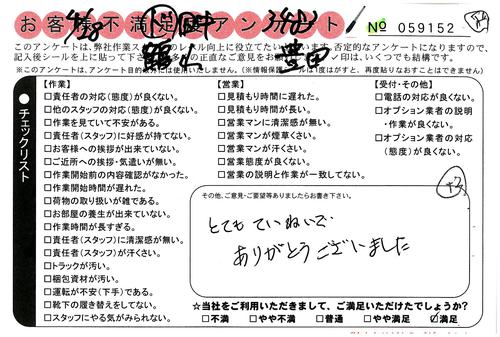 お客様不満足度アンケート
No 059152
このアンケートは、弊社作業ス
のレベル向上に役立てたい
います。否定的なアンケートになりますので、
記入後シールを上に貼って下さ
多の正直なご意見をお
印は、いくつでも結構です。
※このアンケートは、アンケート目的
(※情報保護シールは1度はがすと、再度貼りなおすことはできません)
●チェックリスト
【作業】
□責任者の対応(態度)が良くない。
□他のスタッフの対応(態度)が良くない。
□作業を見ていて不安がある。
□責任者(スタッフ)に好感が持てない。
□お客様への挨拶が出来ていない。
□ご近所への挨拶・気遣いが無い。
□作業開始前の内容確認がなかった。
□作業開始時間が遅れた。
□荷物の取り扱いが雑である。
□お部屋の養生が出来ていない。
□作業時間が長すぎる。
□責任者(スタッフ)に清潔感が無い。
□責任者(スタッフ)が汗くさい。
□トラックが汚い。
□梱包資材が汚い。
□運転が不安(下手)である。
□靴下の履き替えをしてない。
□スタッフにやる気がみられない。
【営業】
□見積もり時間に遅れた。
□見積もり時間が長い。
□営業マンに清潔感が無い。
□営業マンが煙草くさい。
□営業マンが汗くさい。
□営業態度が良くない。
□営業の説明と作業が一致してない。
【受付・その他】
□電話の対応が良くない。
□オプション業者の説明
・作業が良くない。
□オプション業者の対応
(態度)が良くない。
その他、ご意見・ご要望等ありましたらお書き下さい。
とてもていねいで
ありがとうございました
☆当社をご利用いただきまして、ご満足いただけたでしょうか?
□不満 □やや不満 □普通 □やや満足 ☑満足